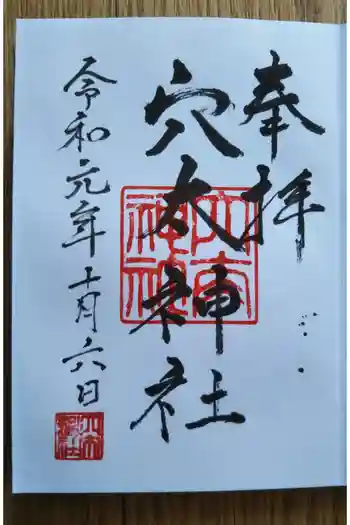 奉拝
穴太神社
令和元年十一月六日